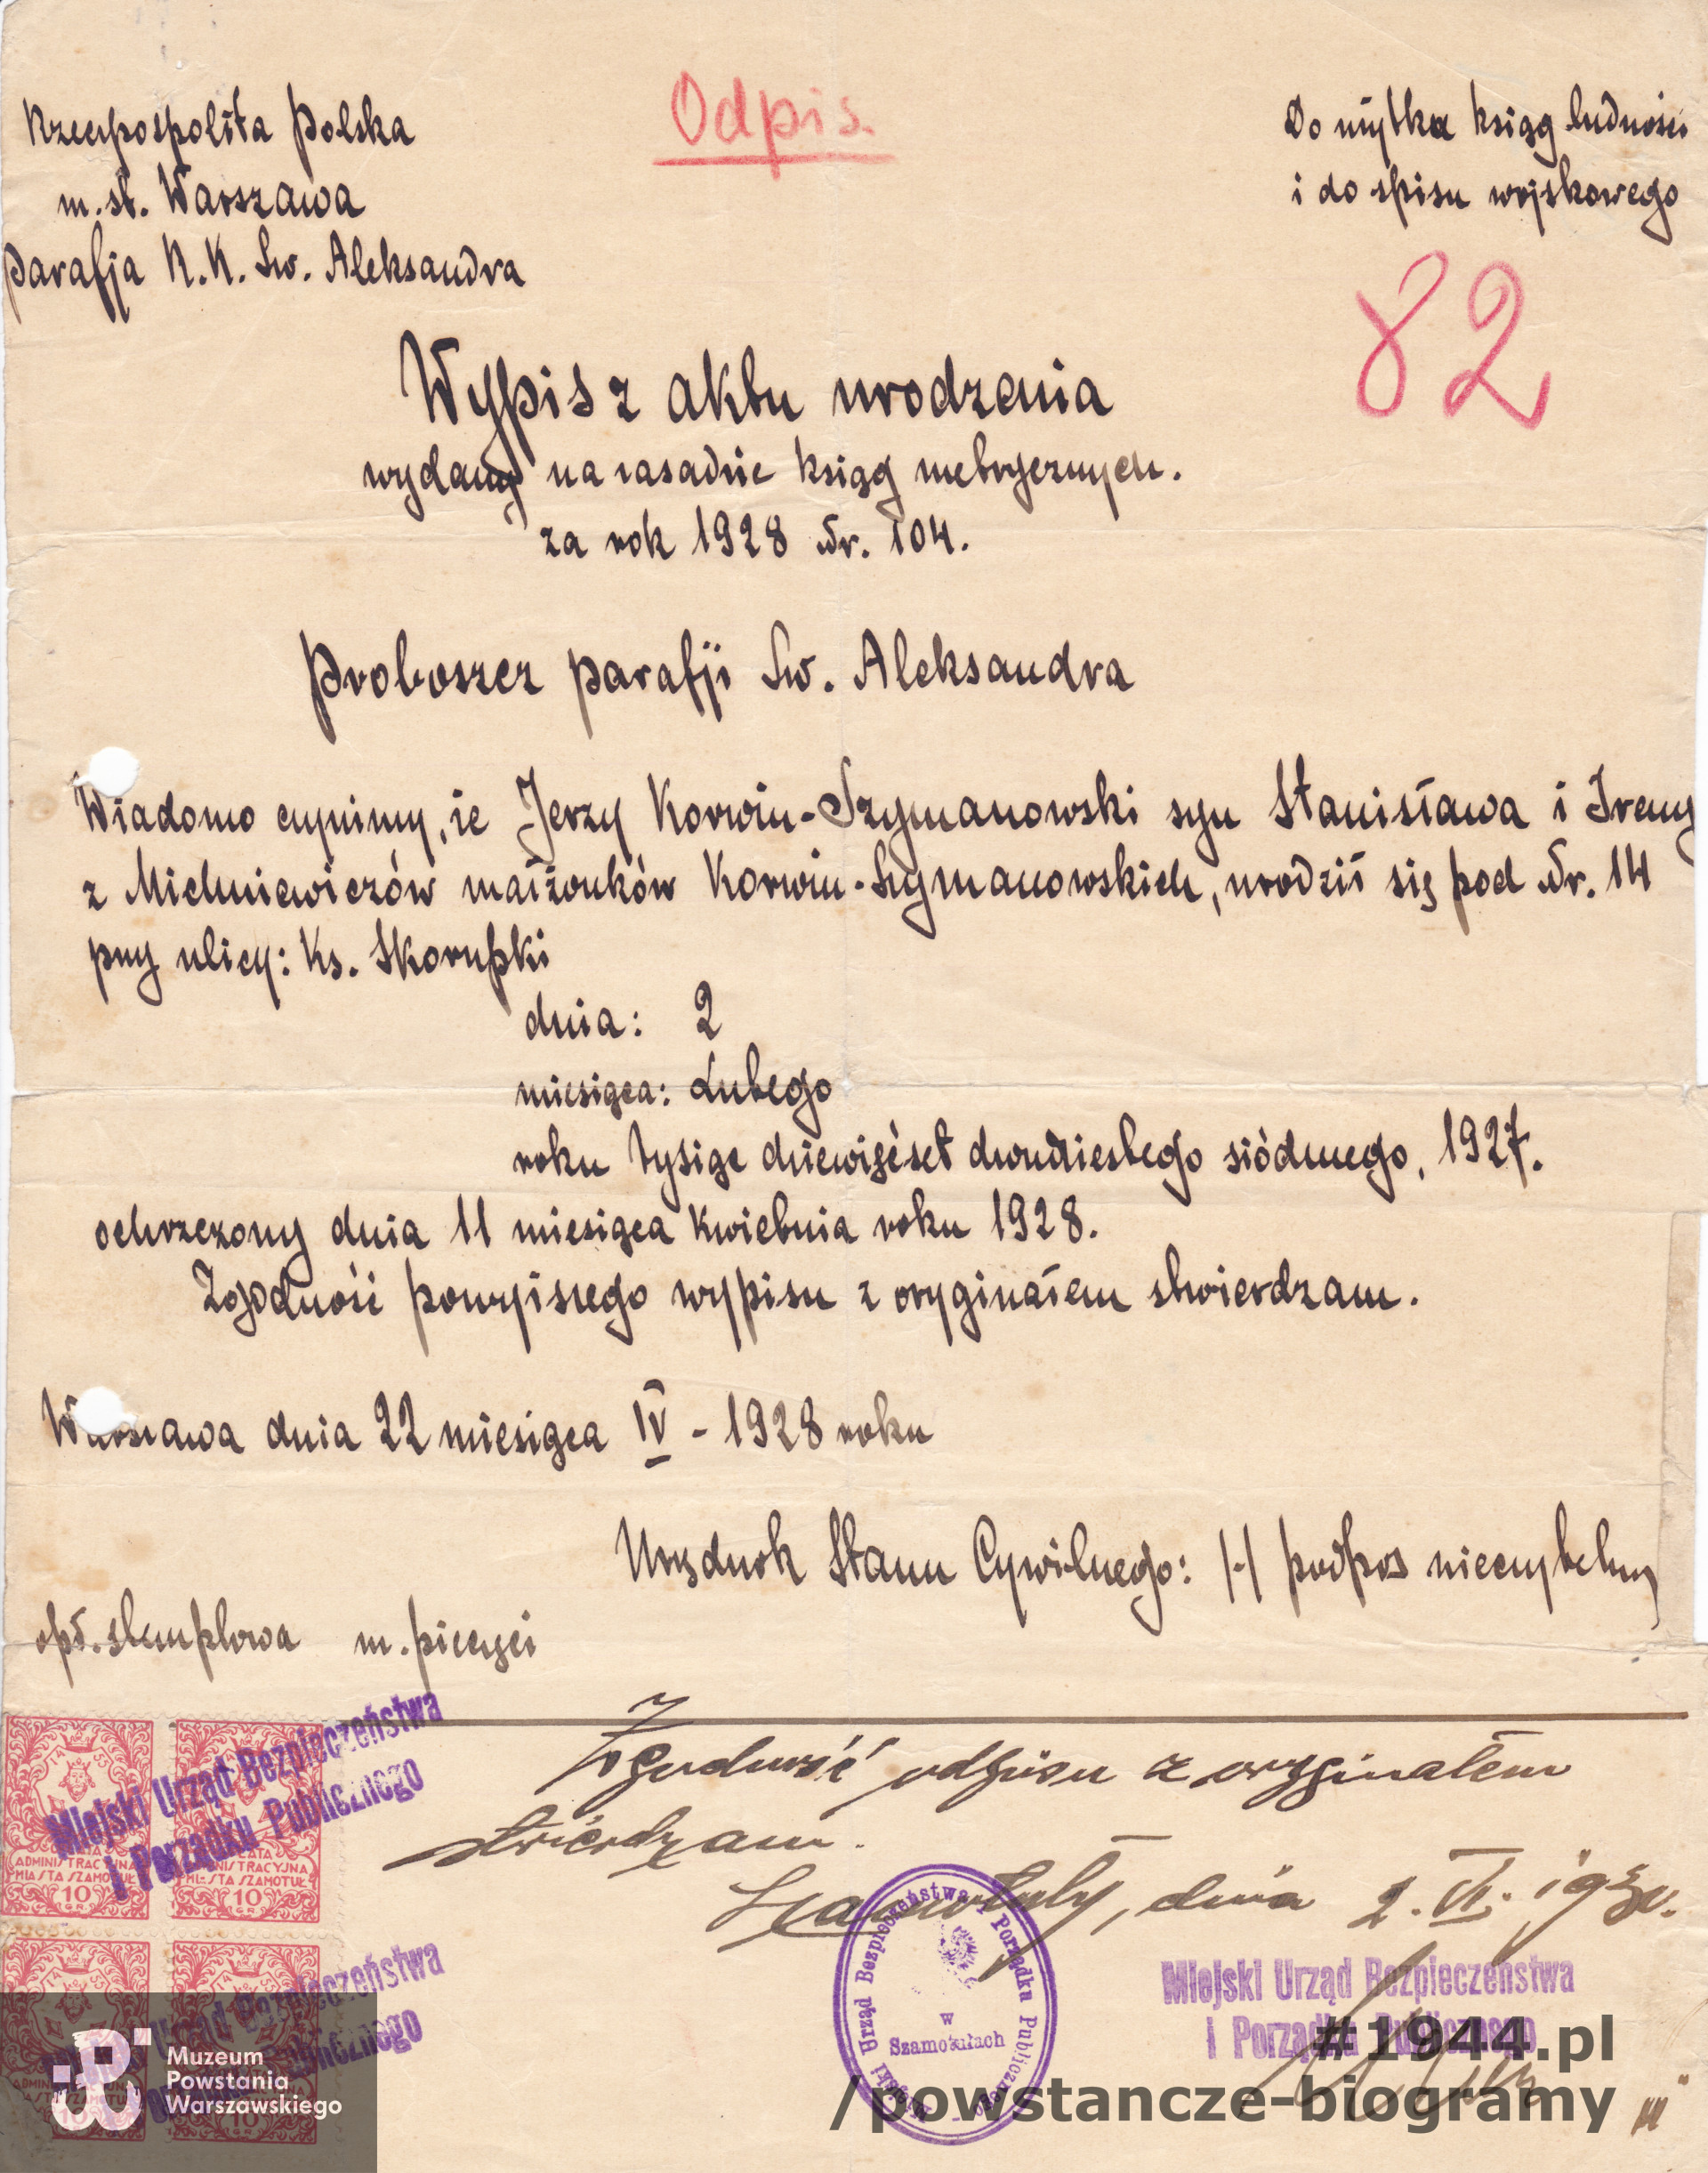 Odpis.
Rzeczpospolita Polska
m. st. Warszawa
Parafja R. K. Św. Aleksandra
Do użytku ksiąg ludności
i do spisu wojskowego
82
Wypis z aktu urodzenia
wydany na zasadzie ksiąg metrycznych.
za rok 1928 Nr. 104.
Proboszcz parafji Św. Aleksandra
Wiadomo czynimy, że Jerzy Korwin-Szymanowski syn Stanisława i Ireny
z Michniewiczów małżonków Korwin-Szymanowskich, urodził się pod Nr. 14
przy ulicy: Ks. Skorupki
dnia: 2
miesiąca: Lutego
roku tysiąc dziewięćset dwudziestego siódmego, 1927.
ochrzczony dnia 11 miesiąca Kwietnia roku 1928.
Zgodność powyższego wypisu z oryginałem stwierdzam.
Warszawa dnia 22 miesiąca IV - 1928 roku
Urzędnik Stanu Cywilnego: /-/ podpis nieczytelny
opł. stemplowa m. pieczęci
Zgodność odpisu z oryginałem
stwierdzam.
Szamotuły, dnia 2. VI. 193
Miejski Urząd Bezpieczeństwa
i Porządku Publicznego
OPŁATA
ADMINISTRACYJNA
MIASTA SZAMOTUŁ
10
OPŁATA
ADMINISTRACYJNA
MIASTA SZAMOTUŁ
10
GR. GR.
Miejski Urząd Bezpieczeństwa
i Porządku Publicznego
Miejski Urząd Bezpieczeństwa i Porządku Publicznego
w
Szamotułach
Miejski Urząd Bezpieczeństwa
i Porządku Publicznego
Muzeum
Powstania
Warszawskiego
#1944.pl
/powstancze-biogramy